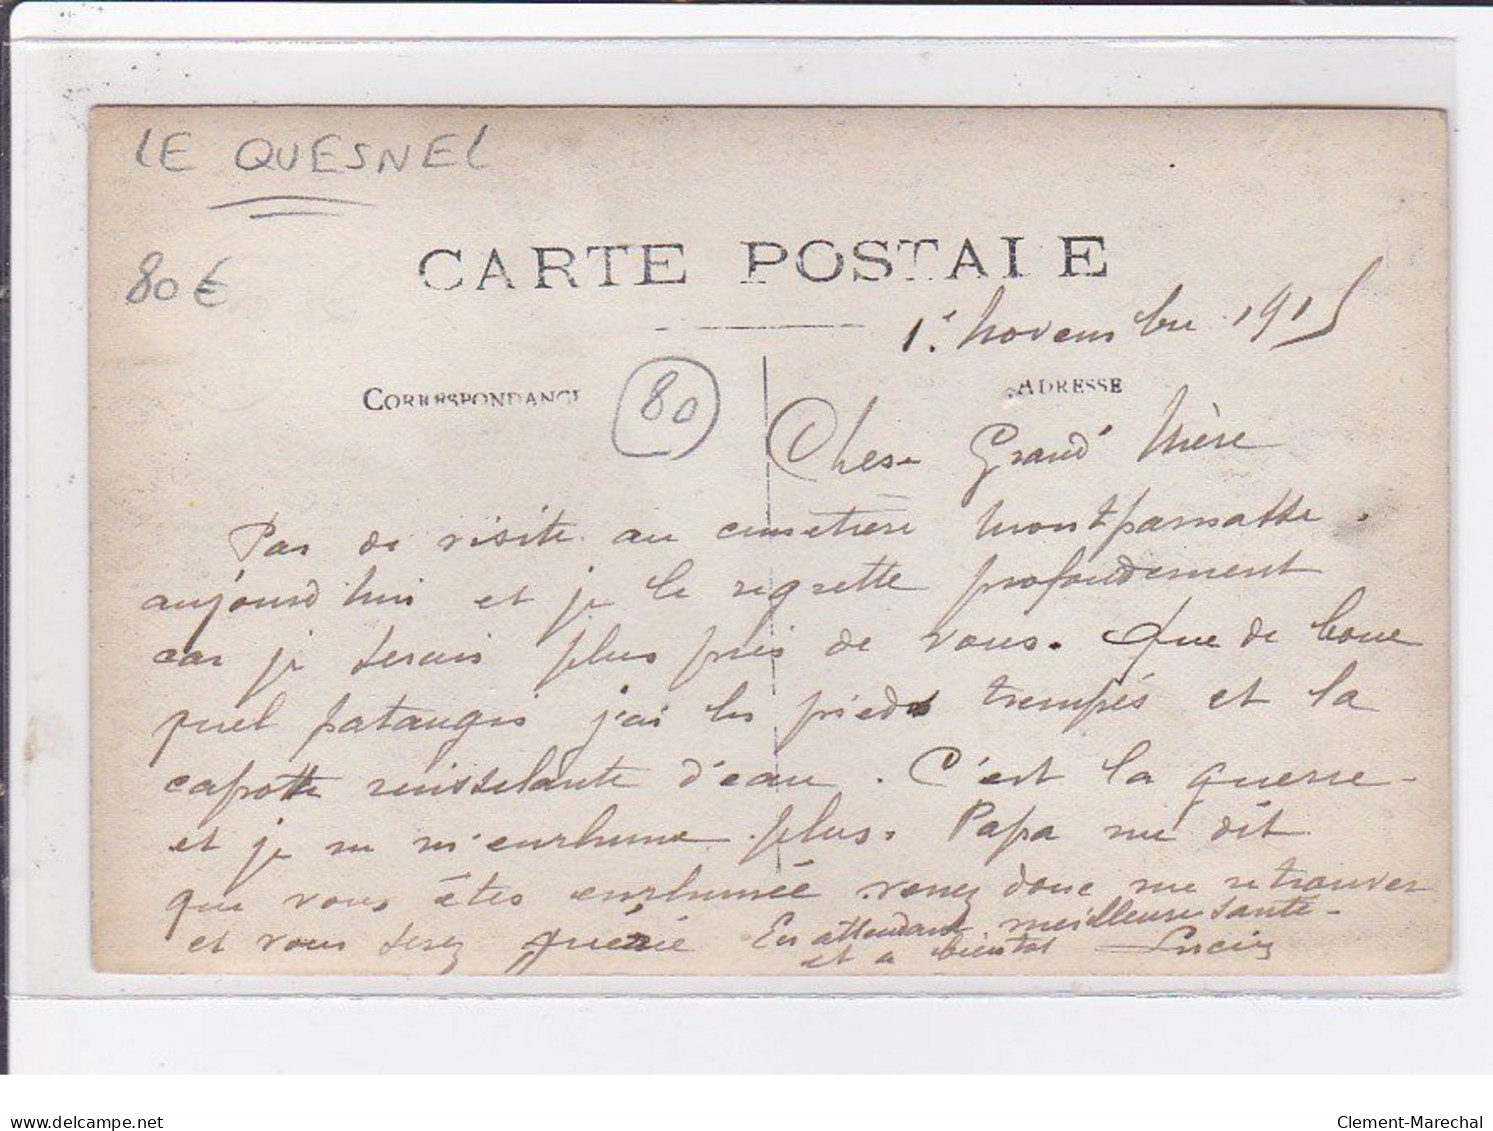 LE QUESNEL
80€
CARTE POSTALE
1er novembre 1915
CORRESPONDANCE
80
ADRESSE
Chere Grand' Mère
Pas de visite au cimetière Montparnasse.
aujourd'hui et je le regrette profondement
car je serais plus près de vous. Que de boue
quel patauges j'ai les pieds trempés et la
capotte ruisselante d'eau. C'est la guerre -
et je ne m'enrhume plus. Papa me dit
que vous êtes enrhumée venez donc me retrouver
et vous serez guérie En attendant meilleure santé -
et a bientot Lucien
delcampe.net
Clement-Marechal